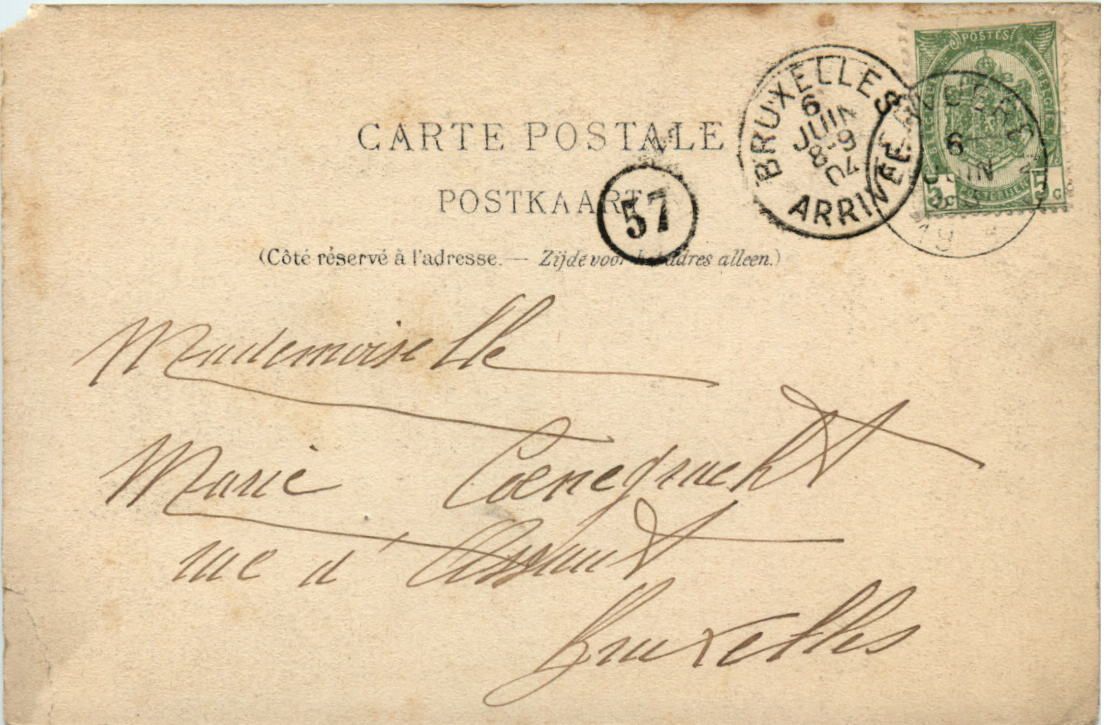 CARTE POSTALE
POSTKAART
(Côté réservé à l'adresse. — Zijde voor het adres alleen.)
57
BRUXELLES
6
JUIN
8-9
04
ARRIVÉE
6
JUIN
19
POSTES
BELGIQUE
BELGIE
5 c
POSTERIJEN
5 c
Mademoiselle
Marie Coenegracht
rue d'Assaut
Bruxelles